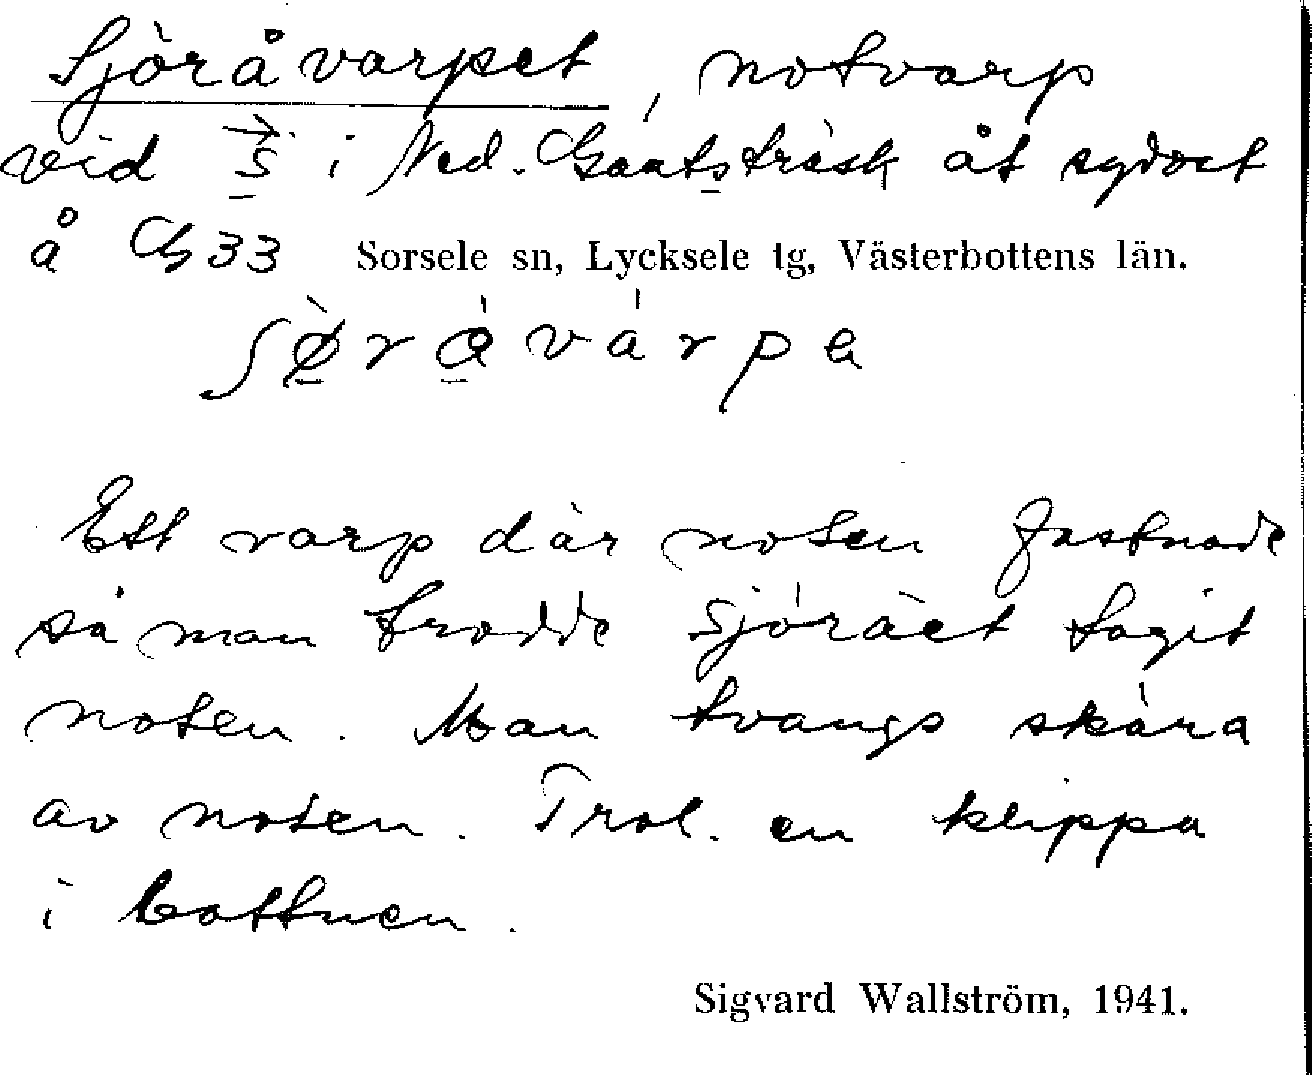 Sjöråvarpet, notvarp
vid S i Ned. Gautsträsk åt sydost
å G 33 Sorsele sn, Lycksele tg, Västerbottens län.
ʃø̀rå̀várpa
Ett varp där noten fastnade
så man trodde sjörået tagit
noten. Man tvangs skära
av noten. Trol. en klippa
i bottnen.
Sigvard Wallström, 1941.